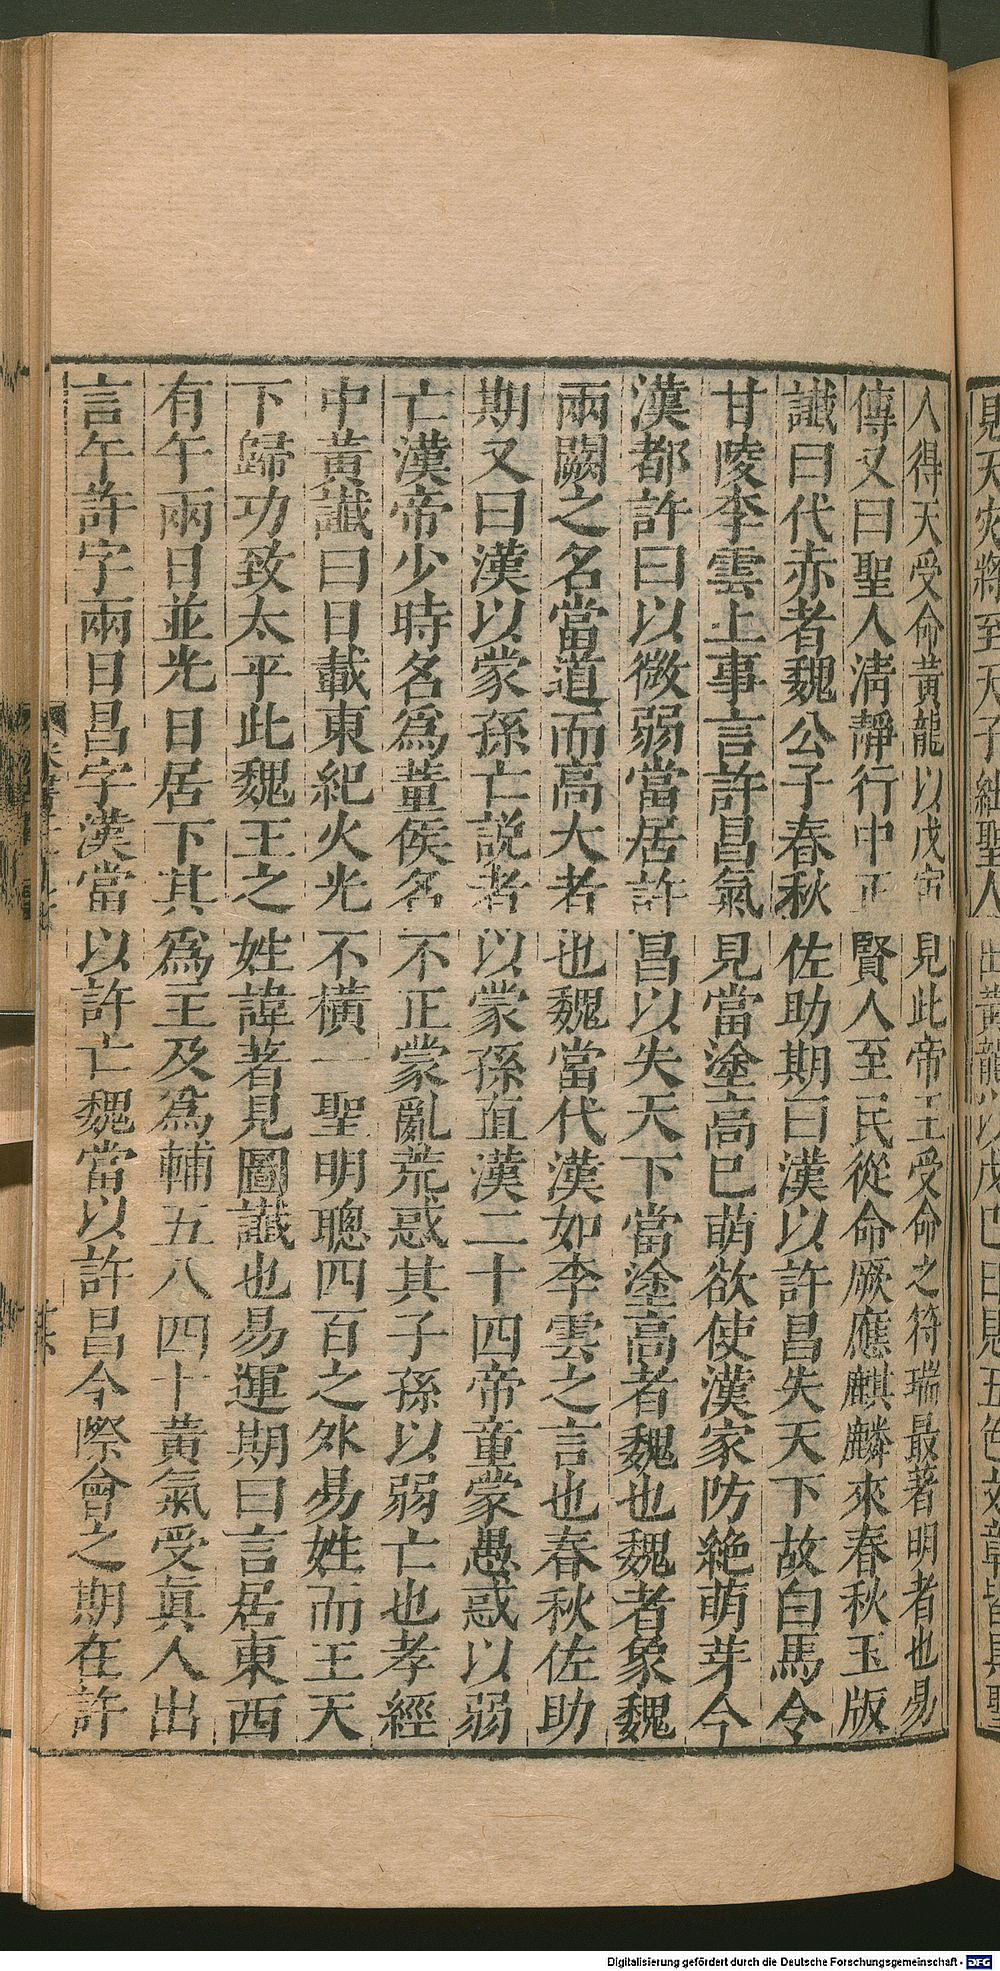 見天災將至天子絀聖人出黃龍以戊巳日見五色文章皆具聖
人得天受命黃龍以戊寅見此帝王受命之符瑞最著明者也易
傳又曰聖人清靜行中正賢人至民從命厥應麒麟來春秋玉版
讖曰代赤者魏公子春秋佐助期曰漢以許昌失天下故白馬令
甘陵李雲上事言許昌氣見當塗高巳萌欲使漢家防絶萌芽今
漢都許曰以微弱當居許昌以失天下當塗高者魏也魏者象魏
兩闕之名當道而高大者也魏當代漢如李雲之言也春秋佐助
期又曰漢以蒙孫亡説者以蒙孫直漢二十四帝童蒙愚惑以弱
亡漢帝少時名爲董侯名不正蒙亂荒惑其子孫以弱亡也孝經
中黃讖曰日載東紀火光不橫一聖明聰四百之外易姓而王天
下歸功致太平此魏王之姓諱著見圖讖也易運期曰言居東西
有午兩日並光日居下其爲主及爲輔五八四十黃氣受眞人出
言午許字兩日昌字漢當以許亡魏當以許昌今際會之期在許
Digitalisierung gefördert durch die Deutsche Forschungsgemeinschaft - DFG